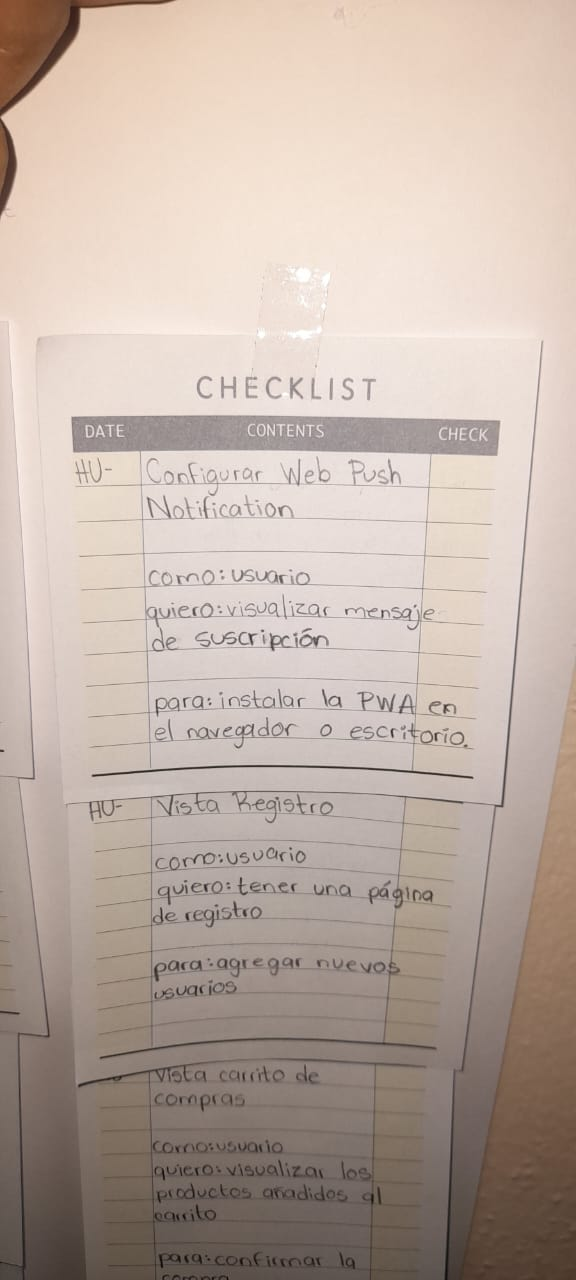 CHECKLIST
DATE CONTENTS CHECK
HU- Configurar Web Push
Notification
como: usuario
quiero: visualizar mensaje
de suscripción
para: instalar la PWA en
el navegador o escritorio.
HU- Vista Registro
como: usuario
quiero: tener una página
de registro
para: agregar nuevos
usuarios
Vista carrito de
compras
como: usuario
quiero: visualizar los
productos añadidos al
carrito
para: confirmar la
compra